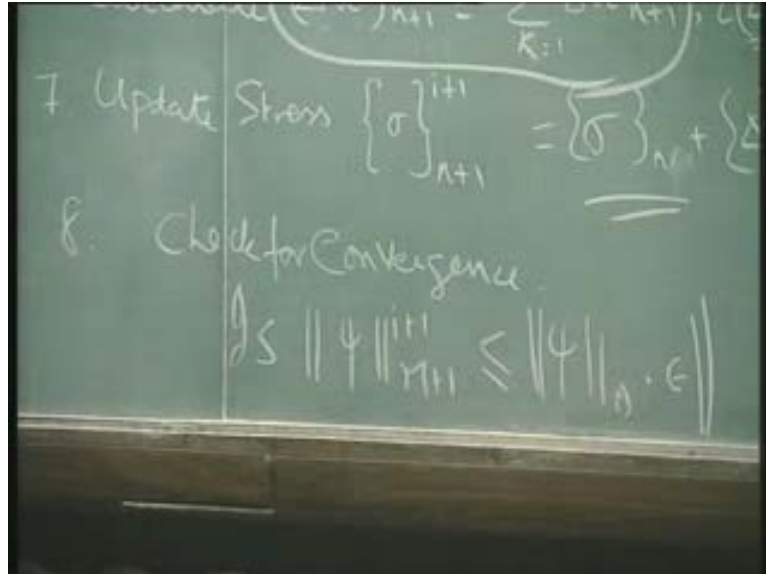 )n+1 = Σ K=1 n+1)
7 Update Stress {σ}^{i+1}_{n+1} = {σ}_n + {Δ
8. Check for Convergence.
Is ||ψ||^{i+1}_{n+1} ≤ ||ψ||_n · ε||